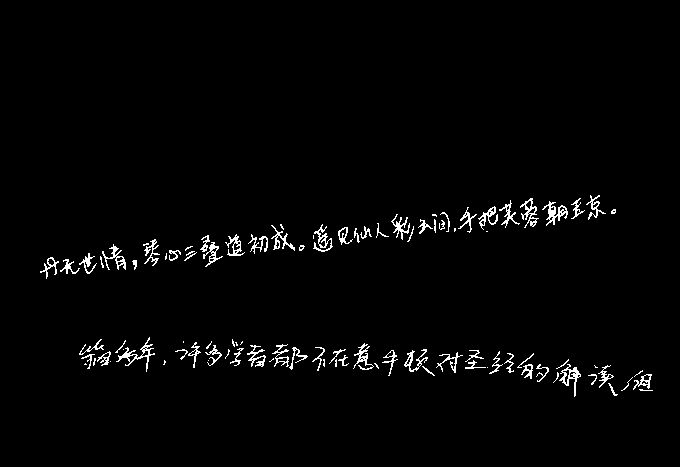 丹无世情,琴心三叠道初成。遥见仙人彩云间,手把芙蓉朝玉京。
多年,许多学者都不在意牛顿对圣经的解读,但